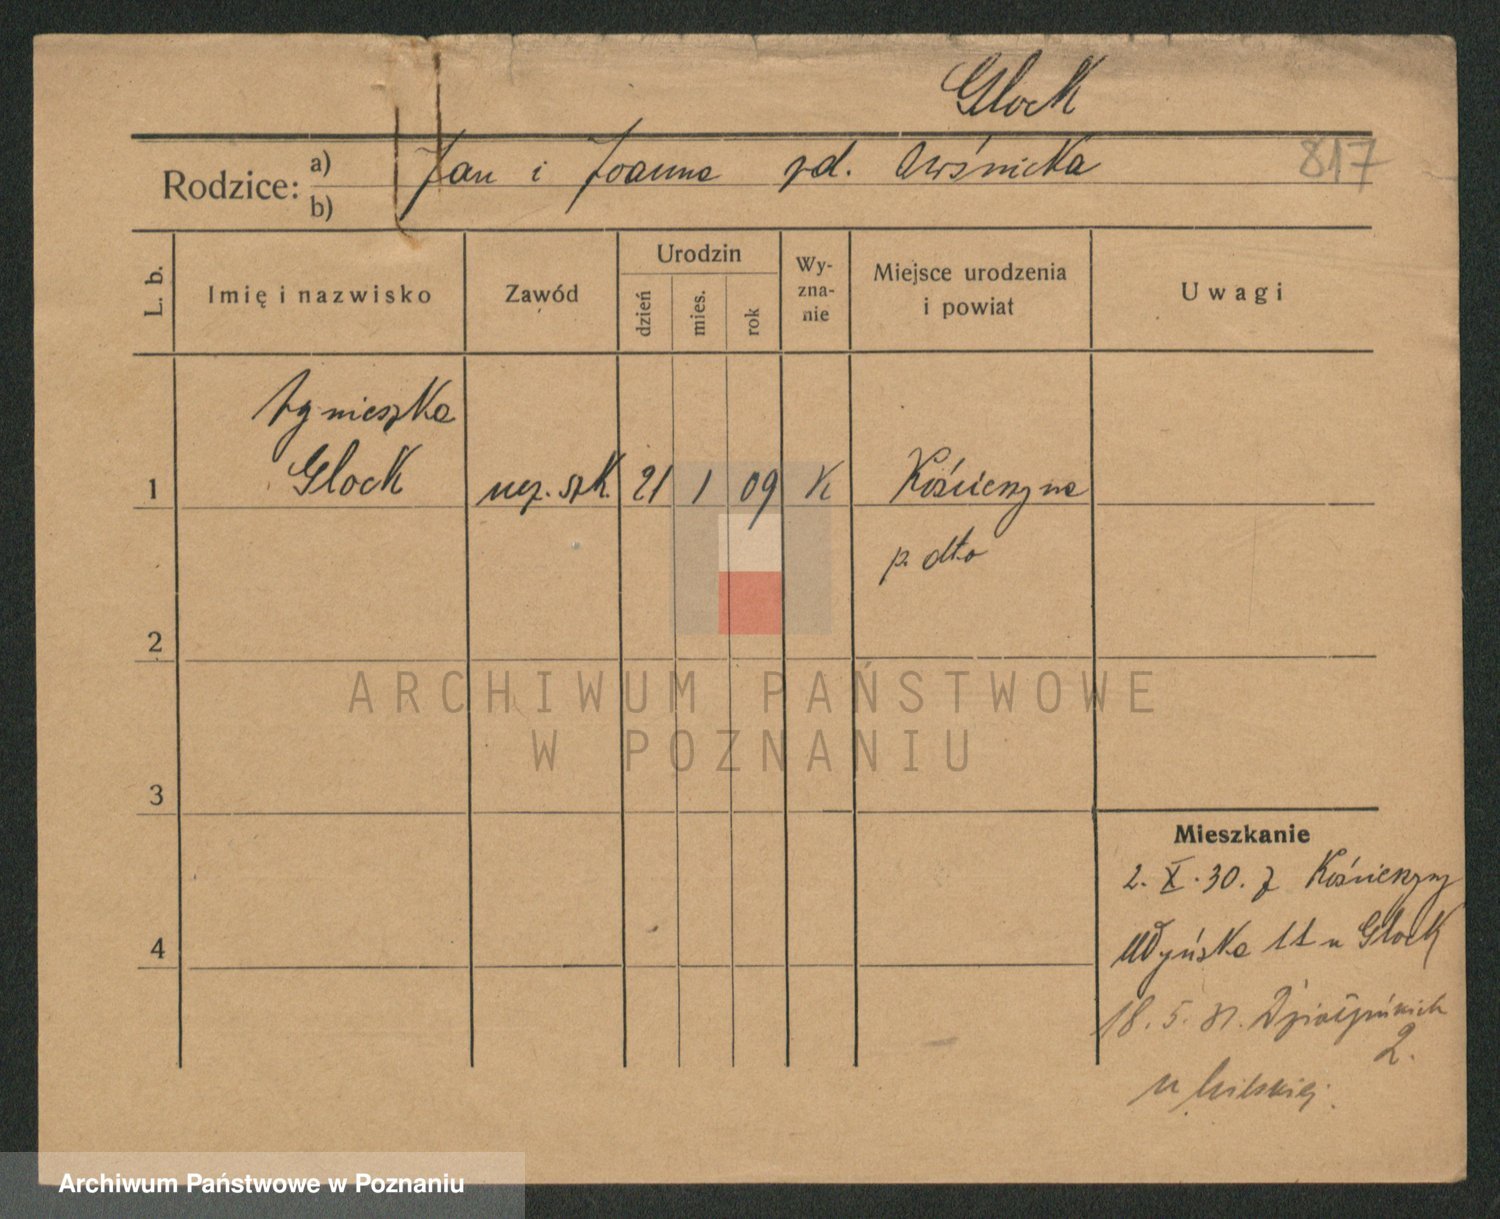 Glock
817
Rodzice: a) Jan i Joanna zd.
b)
L. b.
Imię i nazwisko
Zawód
Urodzin
dzień
mies.
rok
Wy-
zna-
nie
Miejsce urodzenia
i powiat
Uwagi
Agnieszka
1 Glock ucz. szk. 21 1 09 K Kościerzyna
p. dto
2
ARCHIWUM PAŃSTWOWE
W POZNANIU
3
Mieszkanie
2. X. 30. z Kościerzyny
4
11 u Glock
18. 5. 31. Działyńskich
2.
u
Archiwum Państwowe w Poznaniu